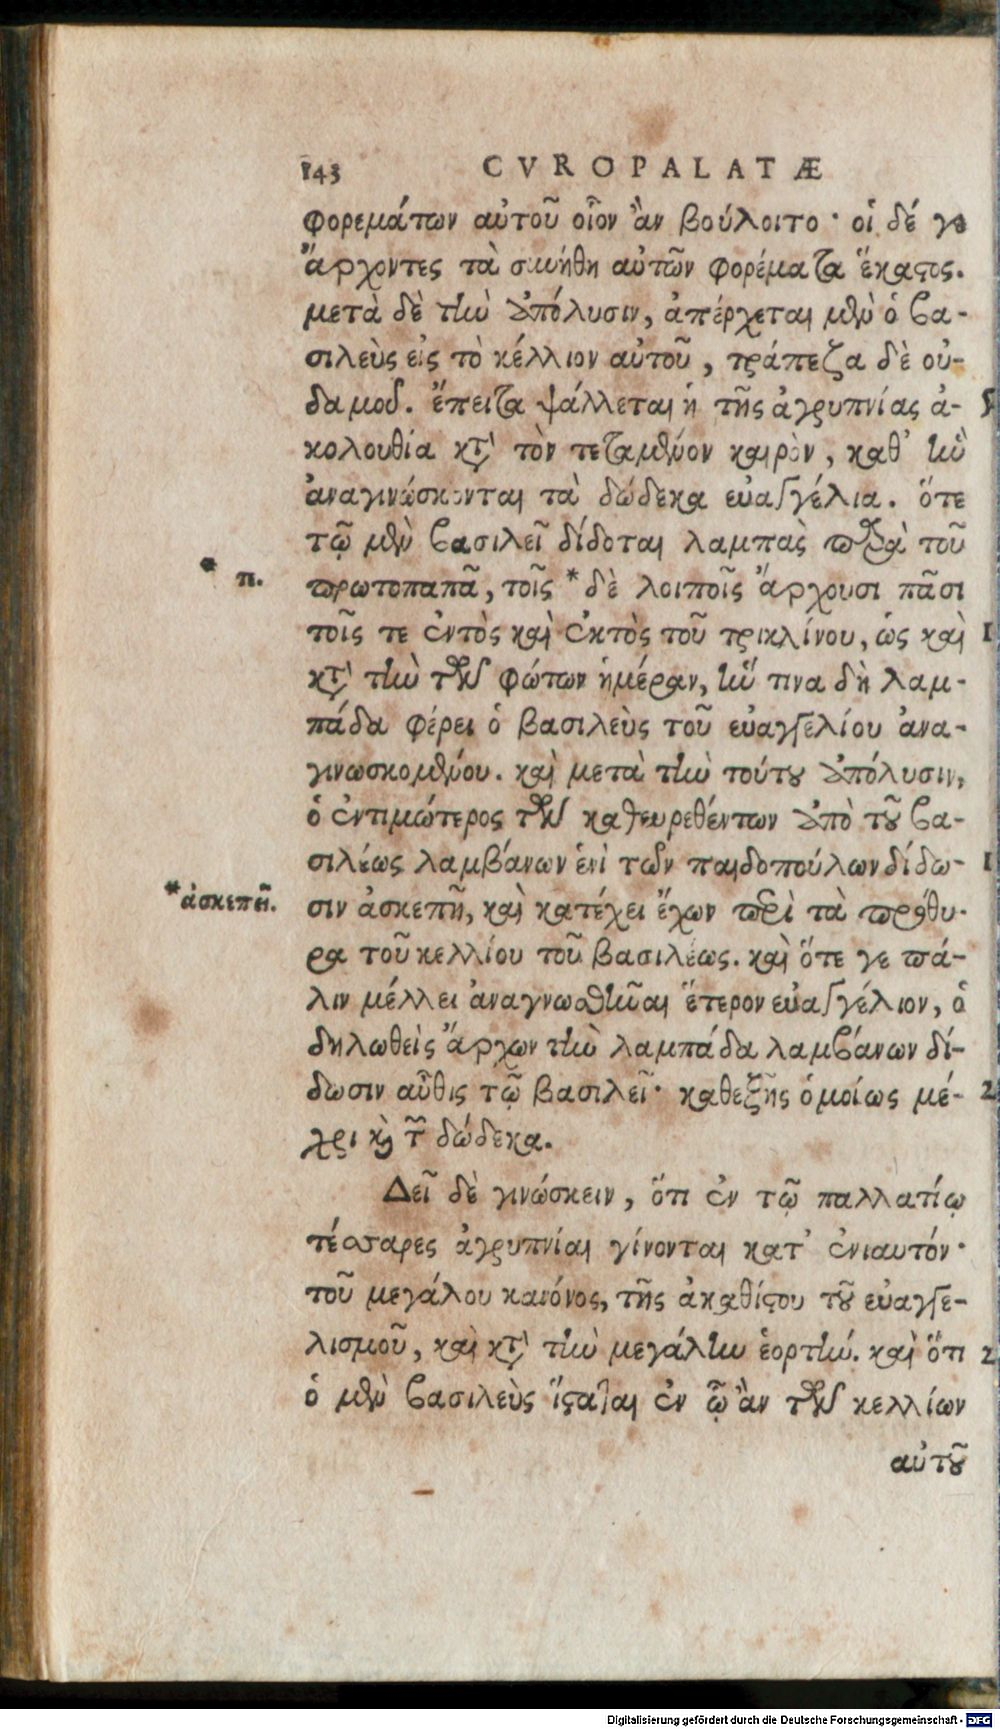 143 CVROPALATÆ
φορεμάτων αὐτοῦ οἷον ἂν βούλοιτο· οἱ δέ γε
ἄρχοντες τὰ συνήθη αὐτῶν φορέματα ἕκαστος.
μετὰ δὲ τὴν ἀπόλυσιν, ἀπέρχεται μὲν ὁ βα-
σιλεὺς εἰς τὸ κέλλιον αὐτοῦ, τράπεζα δὲ οὐ-
δαμοῦ. ἔπειτα ψάλλεται ἡ τῆς ἀγρυπνίας ἀ-
κολουθία κατὰ τὸν τεταμένον καιρὸν, καθ' ἣν
ἀναγινώσκονται τὰ δώδεκα εὐαγγέλια. ὅτε
τῷ μὲν βασιλεῖ δίδοται λαμπὰς παρὰ τοῦ
* π.
πρωτοπαπᾶ, τοῖς * δὲ λοιποῖς ἄρχουσι πᾶσι
τοῖς τε ἐντὸς καὶ ἐκτὸς τοῦ τρικλίνου, ὡς καὶ
κατὰ τὴν τῶν φώτων ἡμέραν, ἥν τινα δὴ λαμ-
πάδα φέρει ὁ βασιλεὺς τοῦ εὐαγγελίου ἀνα-
γινωσκομένου. καὶ μετὰ τὴν τούτου ἀπόλυσιν,
ὁ ἐντιμώτερος τῶν κατευρεθέντων ἀπὸ τοῦ βα-
σιλέως λαμβάνων ἑνὶ τῶν παιδοπούλων δίδω-
*ἀσκεπεῖ.
σιν ἀσκεπῆ, καὶ κατέχει ἔχων περὶ τὰ πρόθυ-
ρα τοῦ κελλίου τοῦ βασιλέως. καὶ ὅτε γε πά-
λιν μέλλει ἀναγνωσθῆναι ἕτερον εὐαγγέλιον, ὁ
δηλωθεὶς ἄρχων τὴν λαμπάδα λαμβάνων δί-
δωσιν αὖθις τῷ βασιλεῖ· καθεξῆς ὁμοίως μέ-
χρι καὶ τῶν δώδεκα.
Δεῖ δὲ γινώσκειν, ὅτι ἐν τῷ παλλατίῳ
τέσσαρες ἀγρυπνίαι γίνονται κατ' ἐνιαυτόν·
τοῦ μεγάλου κανόνος, τῆς ἀκαθίστου τοῦ εὐαγγε-
λισμοῦ, καὶ κατὰ τὴν μεγάλην ἑορτήν. καὶ ὅτι
ὁ μὲν βασιλεὺς ἵσταται ἐν ᾧ ἂν τῶν κελλίων
αὐτοῦ
Digitalisierung gefördert durch die Deutsche Forschungsgemeinschaft - DFG